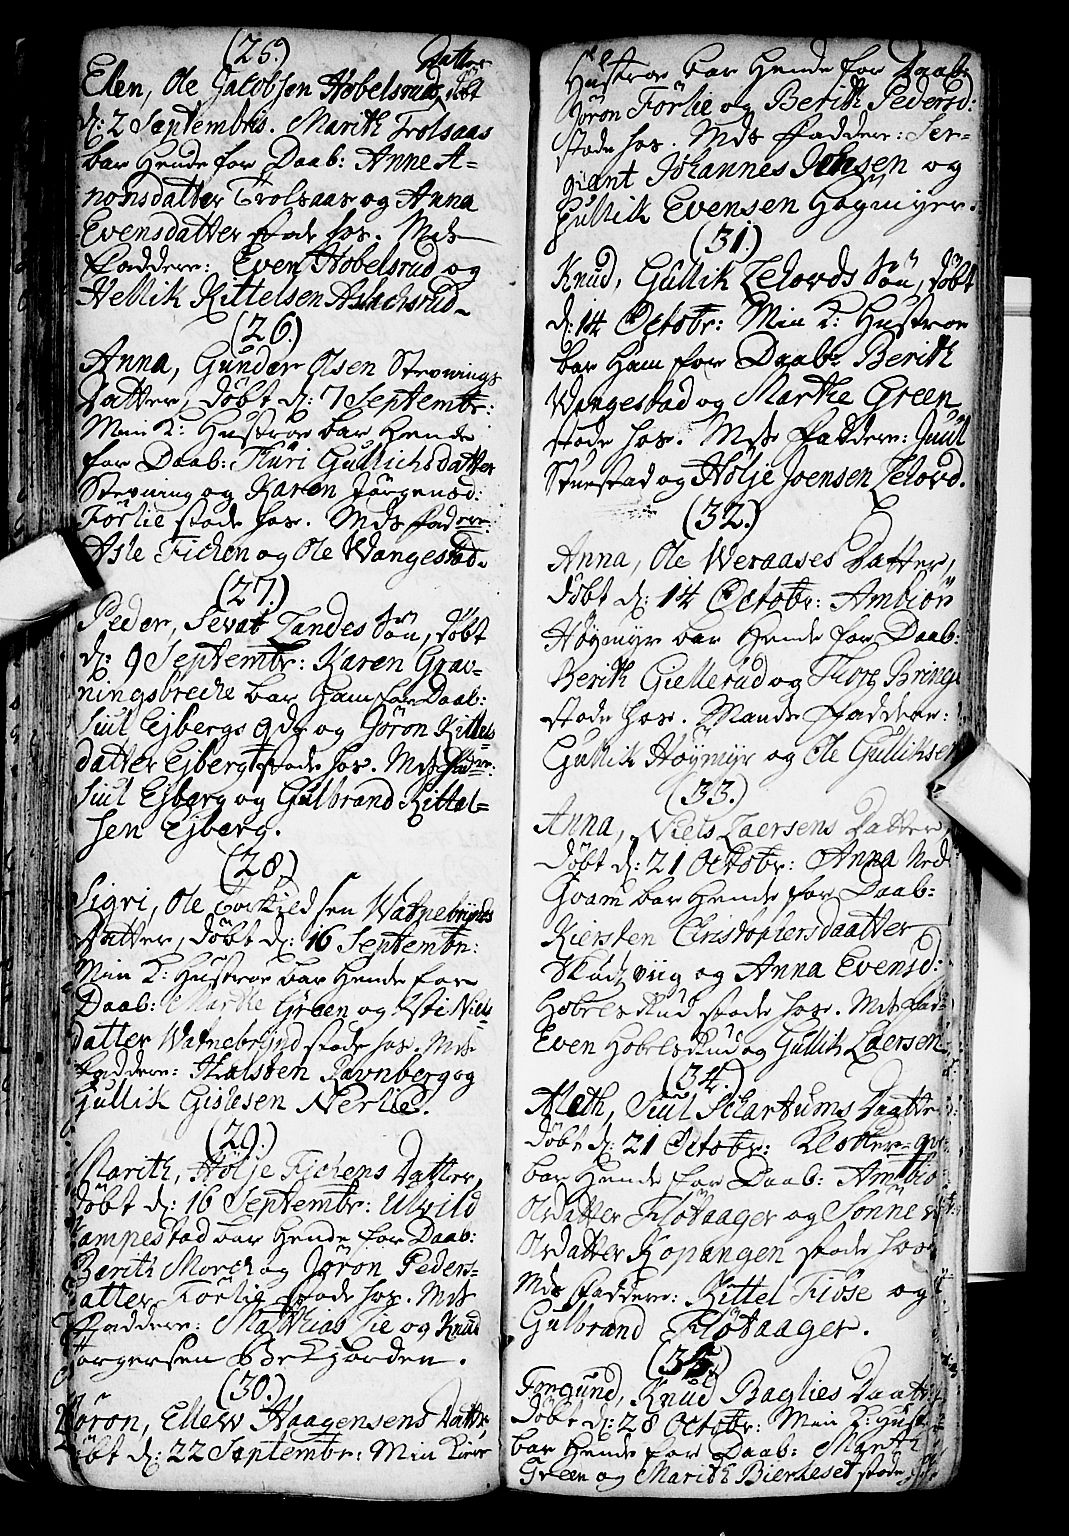 (25.)
Datter
Elen, Ole Jacobsen Hobelsruds, döbt
d: 2 Septembris. Marith Trolsaas
bar hende for Daab: Anne A-
nonsdatter Trolsaas og Anna
Evensdatter stode hos. Mds
faddere: Even Hobelsrud og
Hellik Kittelsen Aslachsrud.
(26.)
Anna, Gunder Olsen Stevnings
Datter, döbt d: 7 Septembr:
Min K: Hustroe bar hende
for Daab: Thuri Gullichsdatter
Stevning og Karen Jörgensd:
Förlie stode hos. Mds fad
Asle Fichen og Ole Wangestad.
(27.)
Peder, Sevat Landes Sön, döbt
d: 9 Septembr: Karen Grav-
ningsbreche bar ham for Daab:
Siul Ejbergs qd: og Jöron Kittels
datter Ejberg stode hos. Mds fad
Siul Ejberg og Gulbrand Kittel-
sen Ejberg.
(28.)
Sigri, Ole Torkildsen Watnebrynds
Datter, döbt d: 16 Septembr:
Min K: Hustroe bar hende for
Daab: Marthe Green og Niels
datter Watnebrynd stode hos. Mds
faddere: Halsten Ravnberg og
Gullik Gislesen Nerlie.
(29.)
Marith, Holje Fichens Datter,
döbt d: 16 Septembr: Ulvild
Lampestad bar hende for Daab:
Berith Morch og Jöron Peders-
datter Förlie stode hos. Mds
faddere: Matthias Lie og Knud
Torgersen Brekjorden.
(30.)
Jöron, Ellew Haagensens Dattr,
döbt d: 22 Septembr: Min Kiere
Hustroe bar hende for Daab:
Jöron Förlie og Berith Pedersd:
stode hos. Mds faddere: Ser-
giant Johannes Jensen og
Gullik Evensen Högmyr.
(31.)
Knud, Gullik Zelovds Sön, döbt
d: 14 Octobr: Min K: Hustroe
bar ham for Daab: Berith
Wangestad og Marthe Green
stode hos. Mds faddere: Juul
Stuestad og Holje Joensen Zelovd.
(32.)
Anna, Ole Weraases Datter,
döbt d: 14 Octobr: Ambiör
Höymyr bar hende for Daab:
Berith Giellerud og Thore Bringe
stode hos. Mands faddere:
Gullik Höymyr og Ole Gulliksen
(33.)
Anna, Niels Laersens Datter,
döbt d: 21 Octobr: Anna Ned
Goam bar hende for Daab:
Kiersten Christophersdaatter
Skudzviig og Anna Evensd:
Hobelsrud stode hos. Mds fad
Even Hobelsrud og Gullik Laersen
(34.)
Aleth, Siul Schartums Daatter
döbt d: 21 Octobr: Klokker
bar hende for Daab: Ambiö
Olsdatter Flötaager og Sönnev
Olsdatter Kopangen stode hos
Mds faddere: Kittel Flöse og
Gulbrand Flötaager.
(35.)
Fregund, Knud Baglies Daatt
döbt d: 28 Octobr: Min K: Hust
bar hende for Daab: Marthe
Green og Marith Bierkeset stode